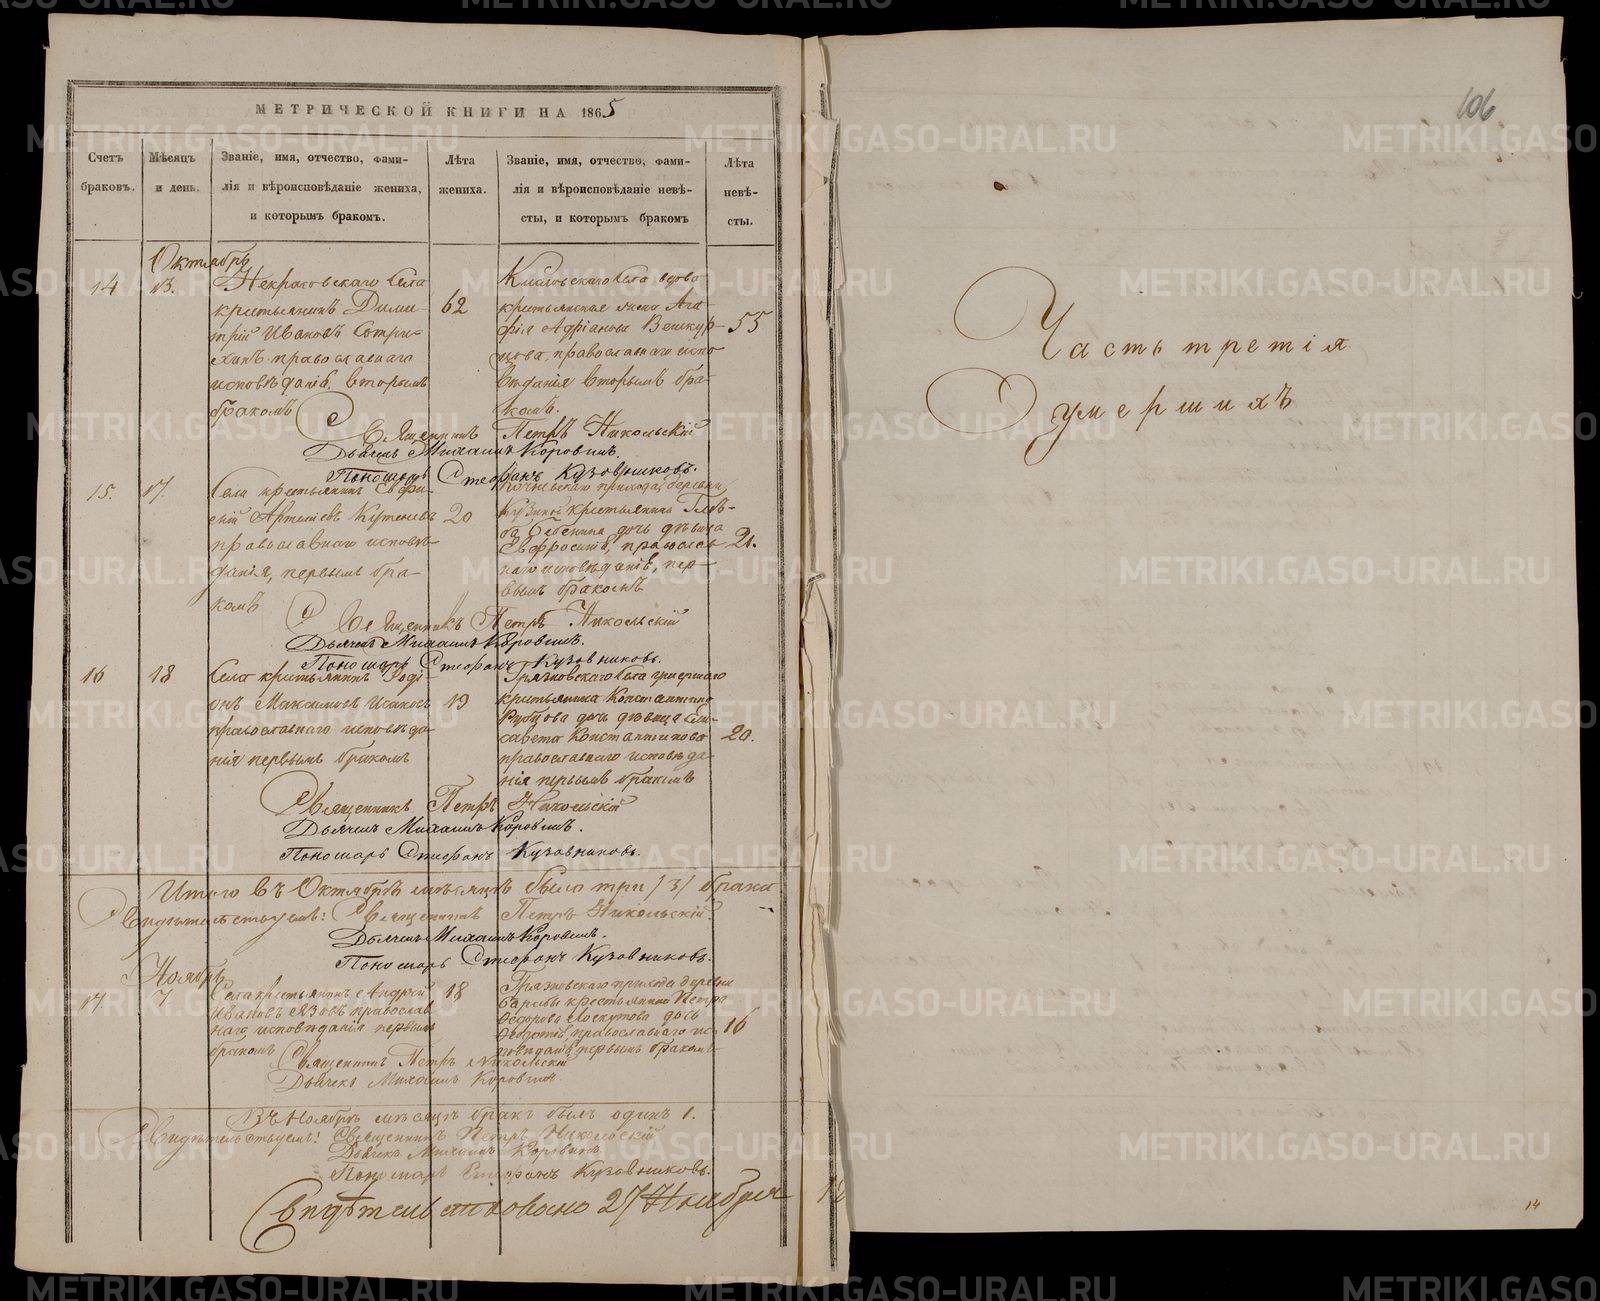 МЕТРИЧЕСКОЙ КНИГИ НА 1865
Счетъ браковъ.
Мѣсяцъ и день.
Званіе, имя, отчество, фами-
лія и вѣроисповѣданіе жениха,
и которымъ бракомъ.
Лѣта жениха.
Званіе, имя, отчество, фами-
лія и вѣроисповѣданіе невѣ-
сты, и которымъ бракомъ
Лѣта невѣ-
сты.
Октябрь
14
13.
Некрасовскаго села
крестьянинъ Дими-
трій Ивановъ
православнаго
исповѣданія, вторымъ
бракомъ
62
села вдова
крестьянская жена Ага-
фія Адріанова
православнаго испо-
вѣданія вторымъ бра-
комъ.
55
Священникъ Петръ Никольскій
Дьячекъ Михаилъ Коровинъ.
Пономарь Стефанъ Кузовниковъ.
15.
17.
Села крестьянинъ
Артемьевъ
православнаго исповѣ-
данія, первымъ бра-
комъ
20
прихода, деревни
крестьянина Глѣ-
ба дочь дѣвица
Евфросинія, православ-
наго исповѣданія, пер-
вымъ бракомъ
21.
Священникъ Петръ Никольскій
Дьячекъ Михаилъ Коровинъ.
Пономарь Стефанъ Кузовниковъ.
16
18
Села крестьянинъ Роді-
онъ Максимовъ Исаковъ
православнаго исповѣда-
нія первымъ бракомъ
19
Грязновскаго села умершаго
крестьянина Константина
Рубцова дочь дѣвица Ели-
савета Константинова
православнаго исповѣда-
нія первымъ бракомъ
20.
Священникъ Петръ Никольскій
Дьячекъ Михаилъ Коровинъ.
Пономарь Стефанъ Кузовниковъ.
Итого въ Октябрѣ мѣсяцѣ было три /3/ брака
Свидѣтельствуемъ: Священникъ Петръ Никольскій.
Дьячекъ Михаилъ Коровинъ.
Пономарь Стефанъ Кузовниковъ.
Ноябрь
17
7.
Села крестьянинъ Андрей
Ивановъ Язовъ православ
наго исповѣданія первымъ
бракомъ
18
Грязновскаго прихода деревни
крестьянина Петра
Ѳедорова Лоскутова дочь
православнаго ис-
повѣданія, первымъ бракомъ
16
Священникъ Петръ Никольскій
Дьячекъ Михаилъ Коровинъ.
Въ Ноябрѣ мѣсяцѣ бракъ былъ одинъ 1.
Свидѣтельствуемъ: Священникъ Петръ Никольскій
Дьячекъ Михаилъ Коровинъ.
Пономарь Стефанъ Кузовниковъ.
Свидѣтельствовано 27 Ноября
106
Часть третія
О умершихъ
14
METRIKI.GASO-URAL.RU